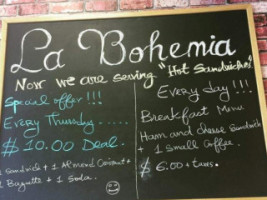 La Bohemia
Now we are serving "Hot Sandwichs!
Special offer !!!
Every Thursday .....
$ 10.00 Deal.
1 Sandwich + 1 Almond Croissant +
1 Baguette + 1 Soda.
Every day !!!
Breakfast Menu
Ham and cheese Sandwich
+ 1 Small Coffee.
$ 6.00 + taxes.